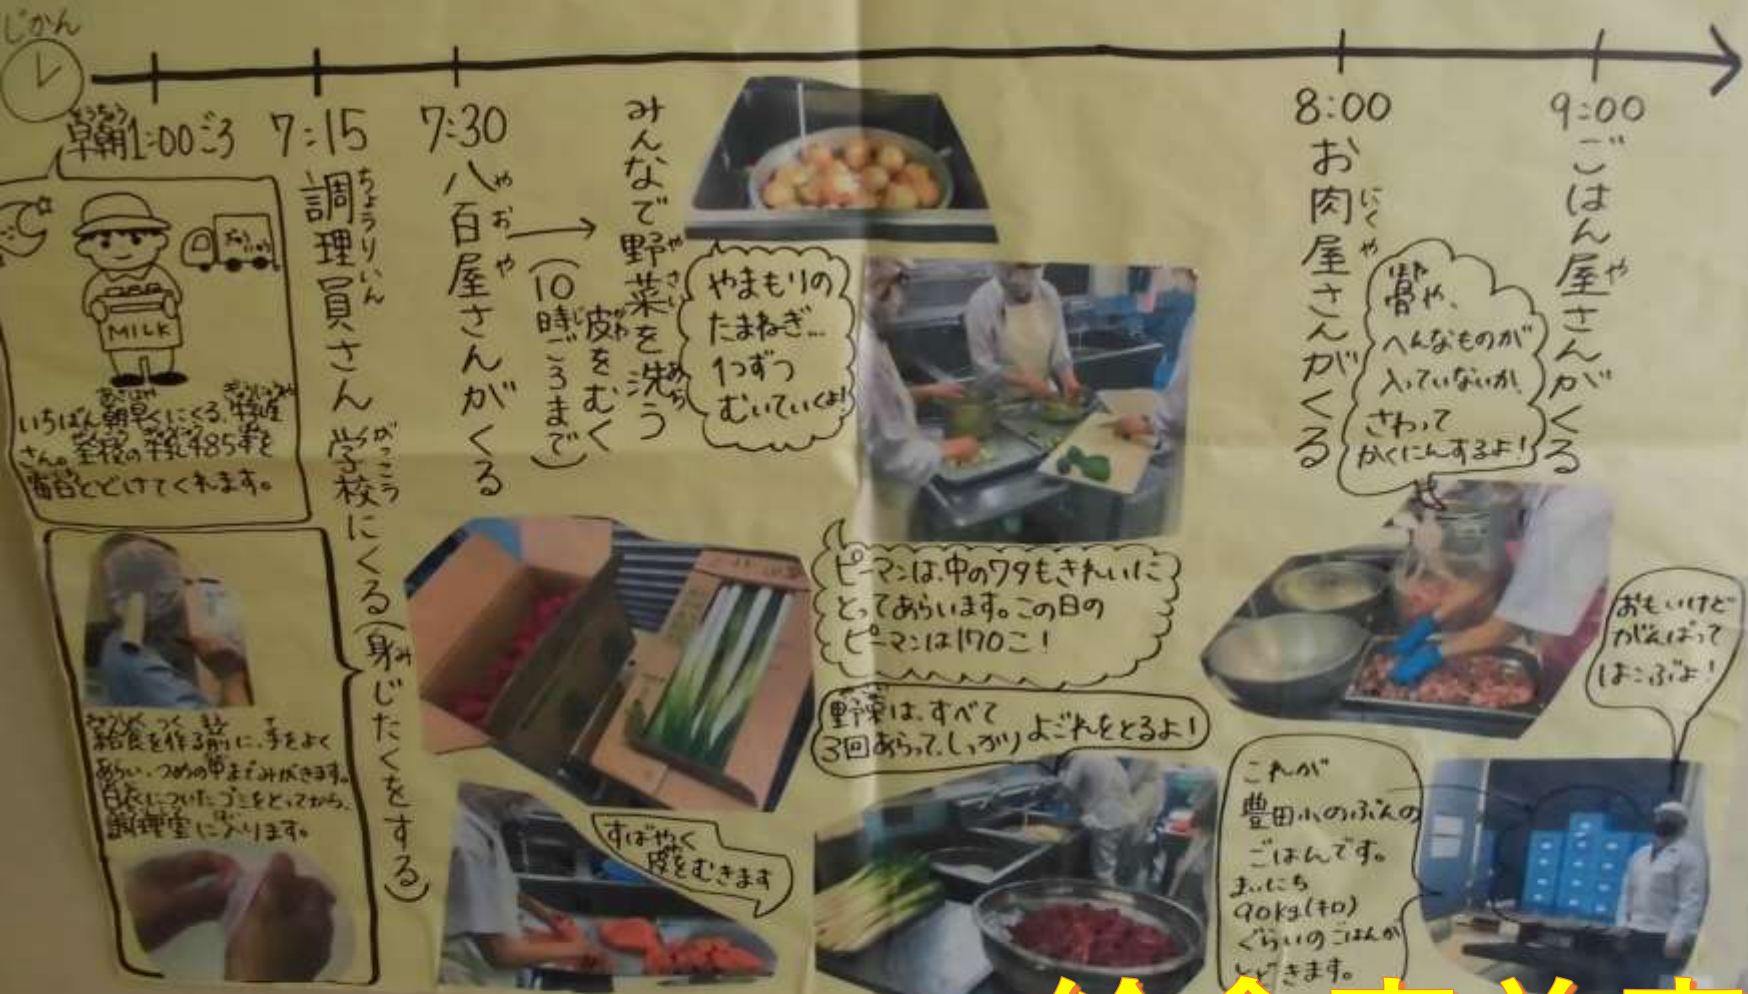 じかん
早朝1:00ごろ
ぎゅうにゅう
MILK
いちばん朝早くにくる、牛乳屋
さん。全校の牛乳485本を
毎日とどけてくれます。
7:15
調理員さん 学校にくる(身じたくをする)
ちょうりいん がっこう み
給食を作る前に、手をよく
あらい、つめの中までみがきます。
白衣についたゴミをとってから、
調理室に入ります。
7:30
八百屋さんがくる
やおや
みんなで野菜を洗う
やさい あら
皮をむく
かわ
(10時ごろまで)
じ
やまもりの
たまねぎ…
1つずつ
むいていくよ!
ピーマンは、中のワタもきれいに
とってあらいます。この日の
ピーマンは170こ!
野菜は、すべて
3回あらって、しっかり よごれをとるよ!
すばやく
皮をむきます
8:00
お肉屋さんがくる
にくや
骨や、
へんなものが
入っていないか、
さわって
かくにんするよ!
9:00
ごはん屋さんがくる
や
おもいけど
がんばって
はこぶよ!
これが
豊田小のぶんの
ごはんです。
まいにち
90kg(キロ)
ぐらいのごはんが
とどきます。